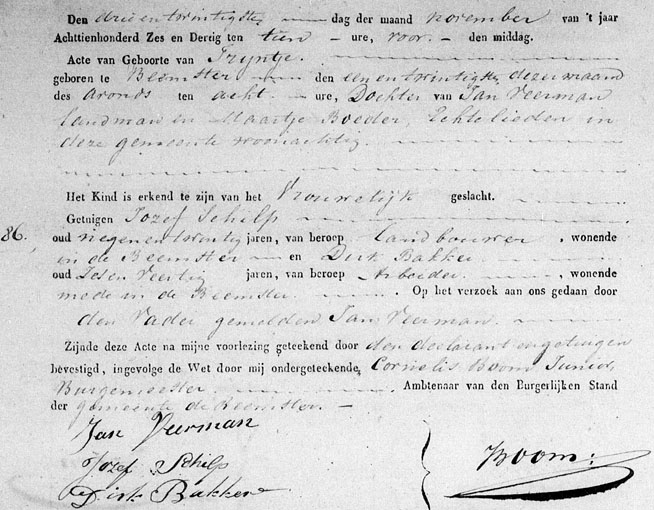 Den drie en twintigste dag der maand november van 't jaar
Achttienhonderd Zes en Dertig ten tien ure, voor den middag.
Acte van Geboorte van Tryntje.
geboren te Beemster den een en twintigste dezer maand
des avonds ten acht ure, Dochter van Jan Veerman
landman en Maartje Boeder, Echtelieden in
deze gemeente woonachtig.
Het Kind is erkend te zijn van het Vrouwelijk geslacht.
Getuigen Jozef Schilp
86. oud negenentwintig jaren, van beroep landbouwer, wonende
in de Beemster en Dirk Bakker
oud Zes en Veertig jaren, van beroep Arbeider, wonende
mede in de Beemster. Op het verzoek aan ons gedaan door
den Vader gemelden Jan Veerman
Zijnde deze Acte na mijne voorlezing geteekend door den declarant en getuigen
bevestigd, ingevolge de Wet door mij ondergeteekende, Cornelis Boom Junior,
Burgemeester. Ambtenaar van den Burgerlijken Stand
der gemeente de Beemster.
Jan Veerman
Jozef Schilp
Dirk Bakker
Boom: